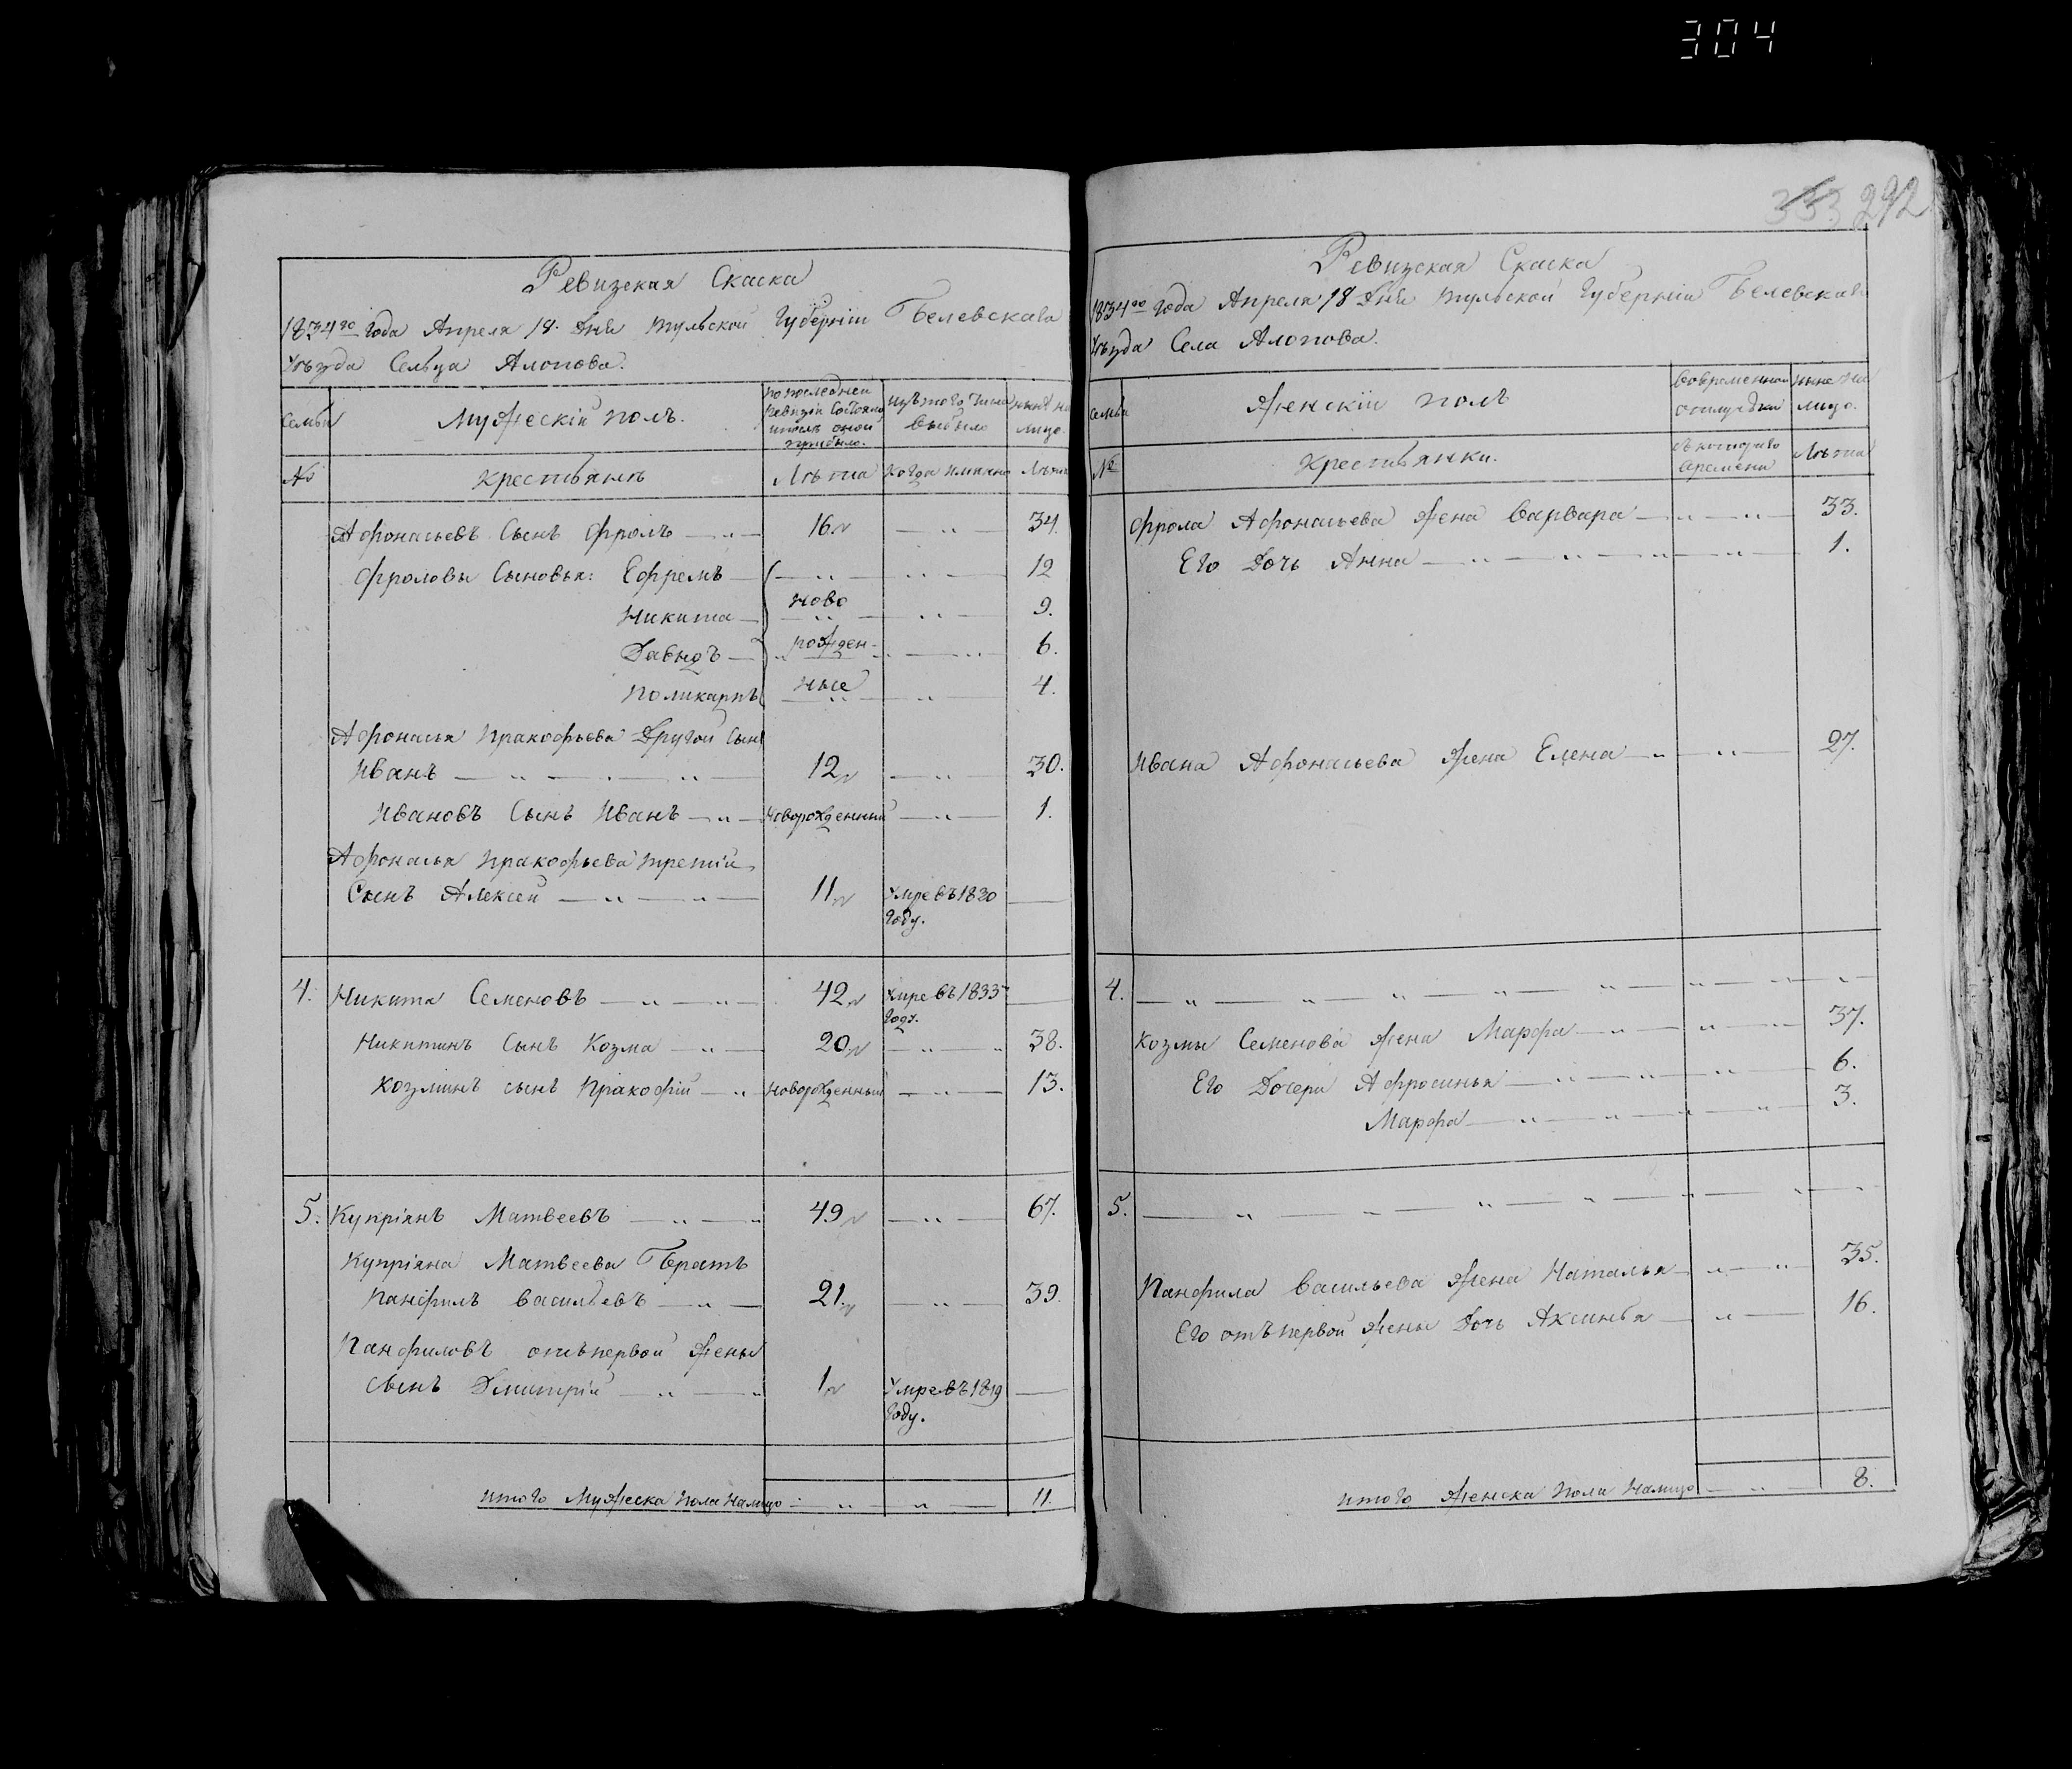 304
333 292
Ревизская Скаска
1834го года Апреля 18. дня Тульской Губерніи Белевскаго
уезда Сельца Алопова.
Семьи
Мужескій полъ.
по последней ревизіи состояло и после оной прибыло.
изъ того числа выбыло
ныне на лицо.
№
Крестьянъ
Лета
Когда имянно
Лета
Афонасьевъ Сынъ Фролъ — „ — 16 — „ — 34.
Фроловы Сыновья: Ефремъ — — „ — „ — 12
Никита — Ново — „ — 9.
Давыдъ — рожден- — „ — 6.
Поликарпъ ные — „ — 4.
Афонасья Пракофьева Другой Сынъ
Иванъ — „ — „ — 12 — „ — 30.
Ивановъ Сынъ Иванъ — „ — Новорожденный — „ — 1.
Афонасья Пракофьева третій
Сынъ Алексей — „ — „ — 11 Умре въ 1820 —
году.
4. Никита Семеновъ — „ — „ — 42 Умре въ 1833 —
году.
Никитинъ Сынъ Козма — „ — 20 — „ — „ 38.
Козминъ сынъ Пракофій — „ Новорожденный — „ — 13.
5. Купріянъ Матвеевъ — „ — „ 49 — „ — 67.
Купріяна Матвеева Братъ
Панфилъ Васильевъ — „ — 21. — „ — 39.
Панфиловъ отъ первой жены
сынъ Дмитрій — „ — „ 1 Умре въ 1819 —
году.
итого Мужеска пола налицо — „ — „ — 11.
Ревизская Скаска
1834го года Апреля 18 дня Тульской Губерніи Белевскаго
уезда Села Алопова.
семьи
Женскій полъ
во временной отлучки
ныне на лицо.
№
Крестьянки.
съ котораго времени
Лета
Фрола Афонасьева жена Варвара — „ — „ — 33.
Его Дочь Анна — „ — „ — „ — „ — 1.
Ивана Афонасьева жена Елена — „ — „ — 27.
4. — „ — „ — „ — „ — „ — „ — „ —
Козмы Семенова жена Марфа — „ — „ — „ — 37.
Его Дочери Афросинья — „ — „ — „ — 6.
Марфа — „ — „ — „ — „ — 3.
5. — „ — „ — „ — „ — „ — „ —
Панфила Васильева жена Наталья — „ — „ 35.
Его отъ первой жены Дочь Аксинья — „ — 16.
итого Женска пола налицо — „ — 8.